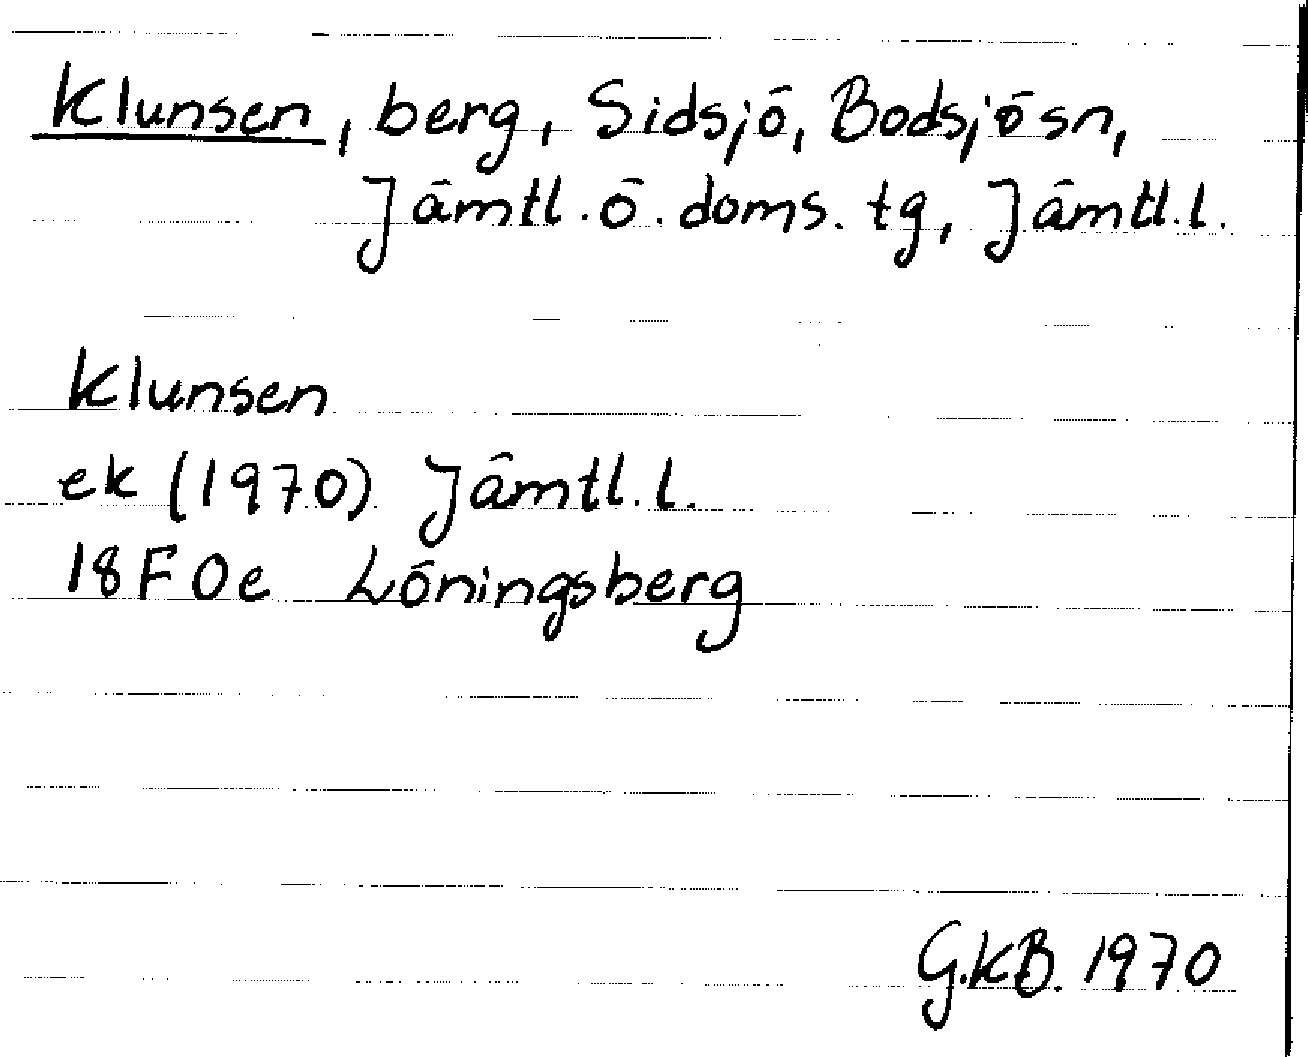 Klunsen, berg, Sidsjö, Bodsjö sn,
Jämtl. ö. doms. tg, Jämtl. l.
Klunsen
ek (1970) Jämtl. l.
18 F 0e Löningsberg
G.K.B. 1970